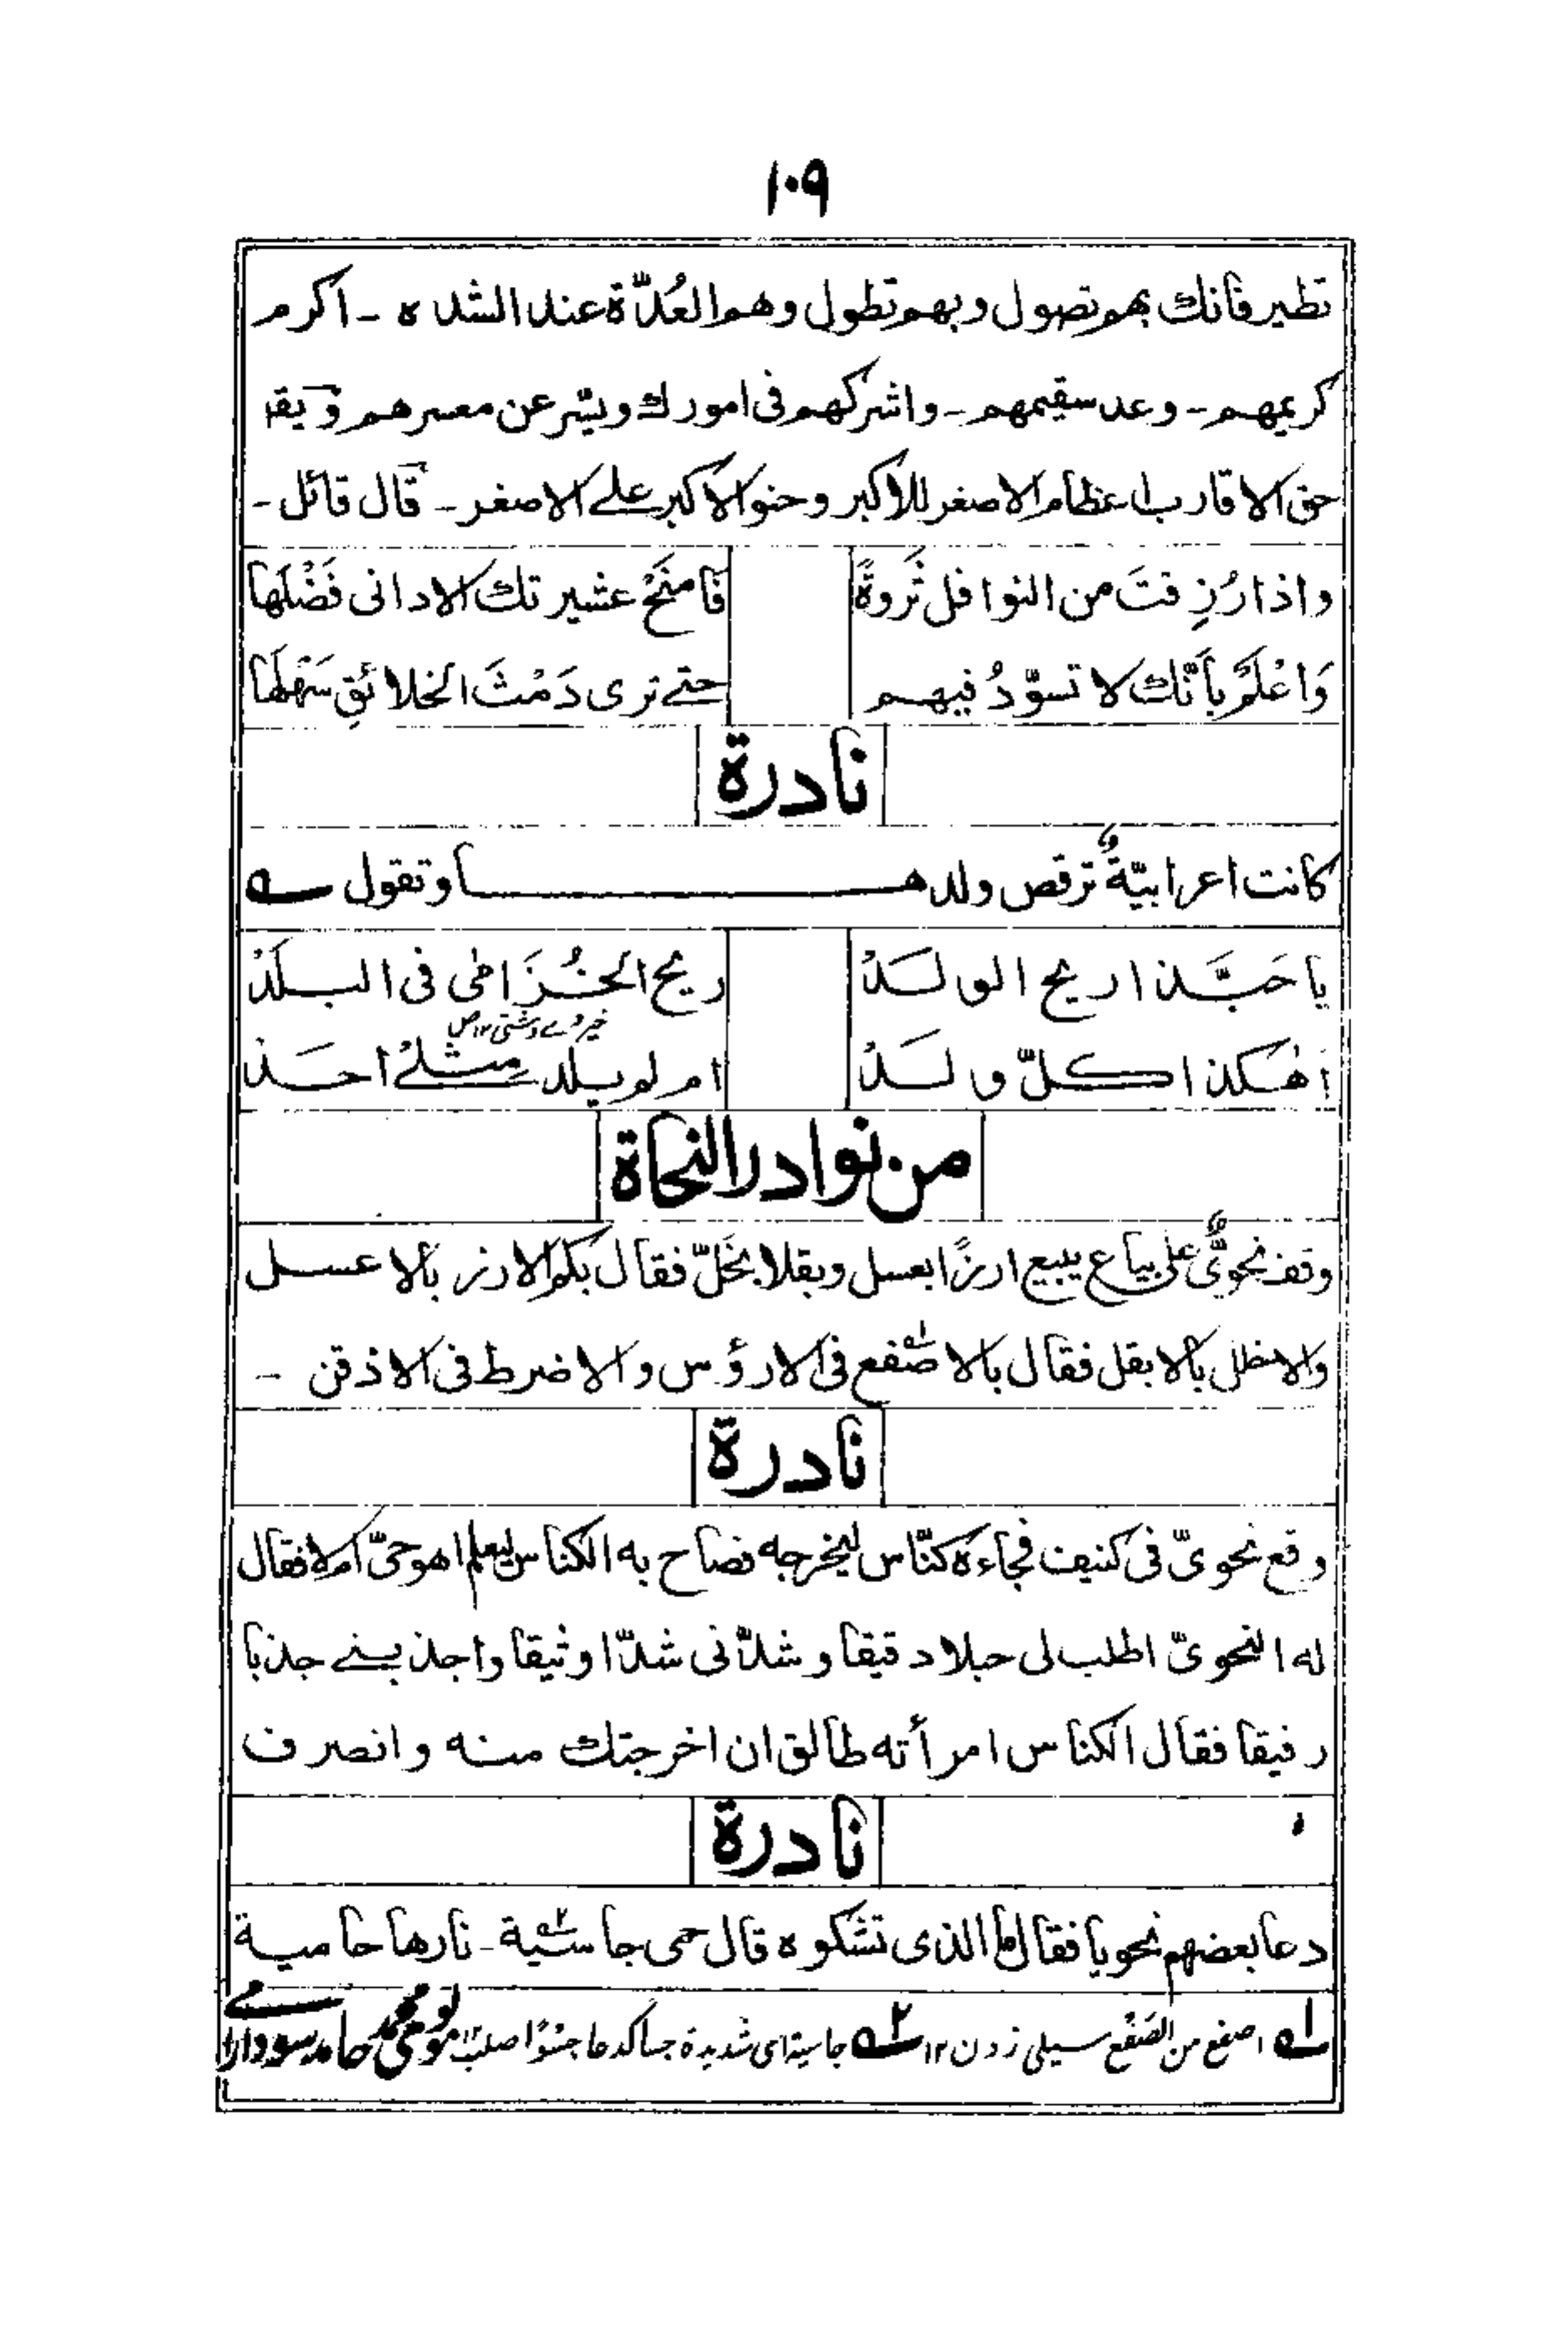 ١٠٩
تطير فانك بهم تصول وبهم تطول وهم العُدّة عند الشده ـ اكرم
كريمهم ـ وعد سقيمهم ـ واشركهم فى امورك ويسّر عن معسرهم ويقا
حق الاقارب اعظام الاصغر للاكبر وحنو الاكبر على الاصغر ـ قال قائل ـ
واذا رُزِقتَ من النوافل ثَروةً فامنَحْ عشيرتك الادانى فَضْلَها
وَاعْلَمْ بأَنّك لا تسوّدُ فيهم حتے ترى دَمْثَ الخلائقِ سَهْلَها
نادرة
كانت اعرابيّةٌ ترقص ولدها وتقول
يا حَبَّذا ريح الولَدْ ريح الخُزَامٰى فى البلَدْ
خيرو دشتى ١٢ ص
أهٰكذا كلّ ولَدْ ام لم يلد مثلےْ احَدْ
من نوادر النحاة
وقف نحوىٌّ على بياع يبيع ارزًا بعسل وبقلا بخَلّ فقال بكم الارز بالاعسل
والاخلل بالابقل فقال بالاصفع فى الارؤس والاضرط فى الاذقن ـ
نادرة
وقع نحوىّ فى كنيف فجاءه كنّاس ليخرجه فصاح به الكناس ليعلم اهو حىّ ام لا فقال
له النحوىّ اطلب لى حبلا دقيقا وشدّنى شدّا وثيقا واجذبنے جذبا
رفيقا فقال الكناس امرأته طالق ان اخرجتك منه وانصرف
نادرة
دعا بعضهم نحويا فقال ما الذى تشكوه قال حمى جاسية ـ نارها حامية
١ اصفع من الصَفْع سيلى زدن ١٢ ٢ جاسية اى شديدة جسا كدعا جسُوًا صلب ١٢ مولوى محمد حامد سودارے